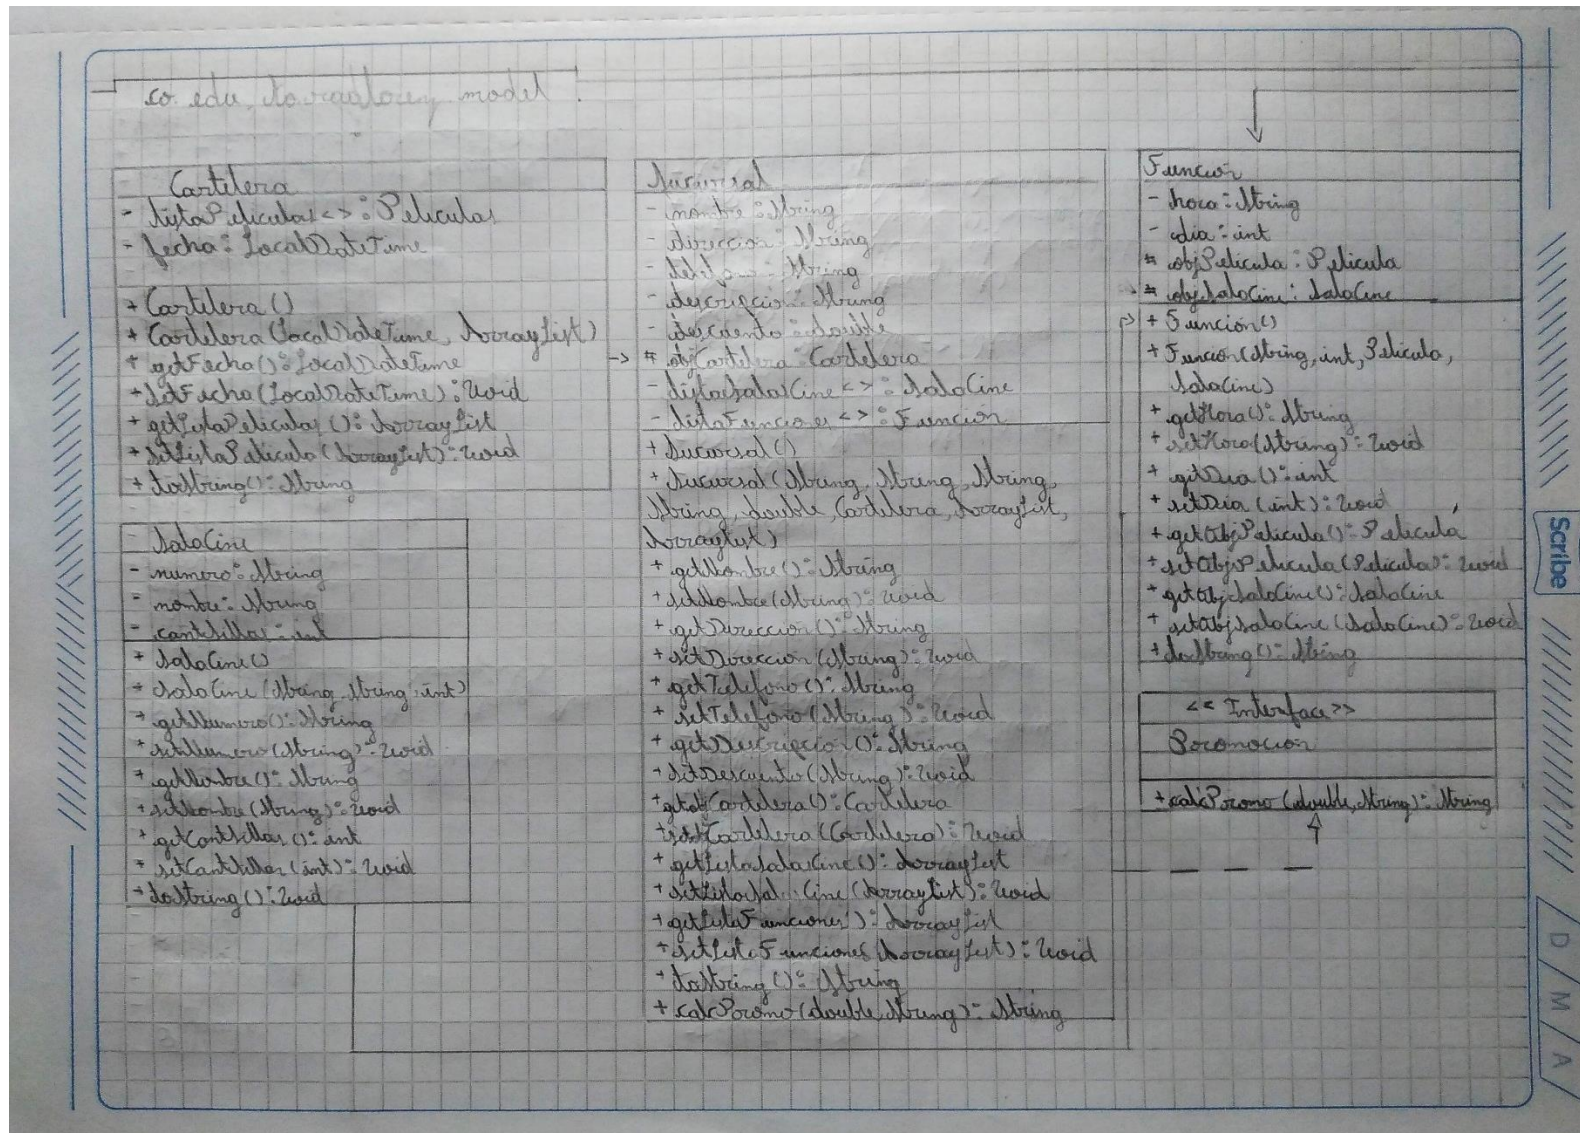 co. edu. model
Cartelera
- listaPeliculas<> : Peliculas
- fecha : LocalDateTime
+ Cartelera ()
+ Cartelera (LocalDateTime, ArrayList)
+ getFecha() : LocalDateTime
+ setFecha (LocalDateTime) : Void
+ getListaPeliculas () : ArrayList
+ setListaPelicula (ArrayList) : Void
+ toString() : String
SalaCine
- numero : String
- nombre : String
- cantSillas : int
+ SalaCine ()
+ SalaCine (String, String, int)
+ getNumero() : String
+ setNumero (String) : Void
+ getNombre () : String
+ setNombre (String) : Void
+ getCantSillas () : int
+ setCantSillas (int) : Void
+ toString () : Void
Sucursal
- nombre : String
- direccion : String
- telefono : String
- descripcion : String
- descuento : double
# objCartelera : Cartelera
- listaSalasCine <> : SalaCine
- listaFunciones <> : Funcion
+ Sucursal ()
+ Sucursal (String, String, String,
String, double, Cartelera, ArrayList,
ArrayList)
+ getNombre () : String
+ setNombre (String) : Void
+ getDireccion () : String
+ setDireccion (String) : Void
+ getTelefono () : String
+ setTelefono (String) : Void
+ getDescripcion () : String
+ setDescuento (String) : Void
+ getobjCartelera () : Cartelera
+ Cartelera (Cartelera) : Void
+ getListaSalasCine () : ArrayList
+ setListaSal Cine (ArrayList) : Void
+ getListaFunciones () : ArrayList
+ setListaFunciones (ArrayList) : Void
+ toString () : String
+ calcPromo (double, String) : String
Funcion
- hora : String
- dia : int
# objPelicula : Pelicula
# objSalaCine : SalaCine
+ Función()
+ Funcion (String, int, Pelicula,
SalaCine)
+ getHora () : String
+ setHora (String) : Void
+ getDia () : int
+ setDia (int) : Void
+ getObjPelicula () : Pelicula
+ setObjPelicula (Pelicula) : Void
+ getObjSalaCine () : SalaCine
+ setObjSalaCine (SalaCine) : Void
+ toString () : String
<< Interface >>
Promocion
+ calcPromo (double, String) : String
Scribe
D / M / A